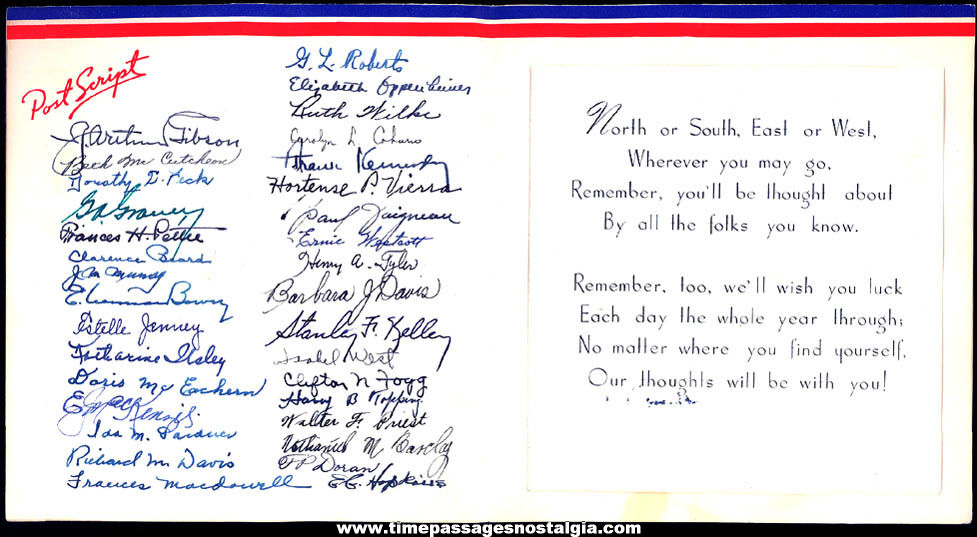 Post Script
J. Arthur Gibson
Beth Mc Cutcheon
Dorothy E. Peck
Frances H. Pettee
Clarence Beard
J. M. Murray
Bowry
Estelle Jenney
Katharine Ilsley
Doris Mc Eachern
Ida M. Gardner
Richard M. Davis
Frances Macdowell
G. L. Roberts
Elizabeth Oppenheimer
Ruth Wilke
Carolyn L.
Frank Kennedy
Hortense P. Vierra
Paul Daigneau
Ernie Westcott
Henry A. Tyler
Barbara J Davis
Stanley F. Kelley
Isabel West
Clifton N Fogg
Harry B Topping
Walter F. Priest
Nathaniel M Barclay
T P Doran
E. E. Hopkins
North or South, East or West,
Wherever you may go,
Remember, you'll be thought about
By all the folks you know.
Remember, too, we'll wish you luck
Each day the whole year through;
No matter where you find yourself,
Our thoughts will be with you!
www.timepassagesnostalgia.com